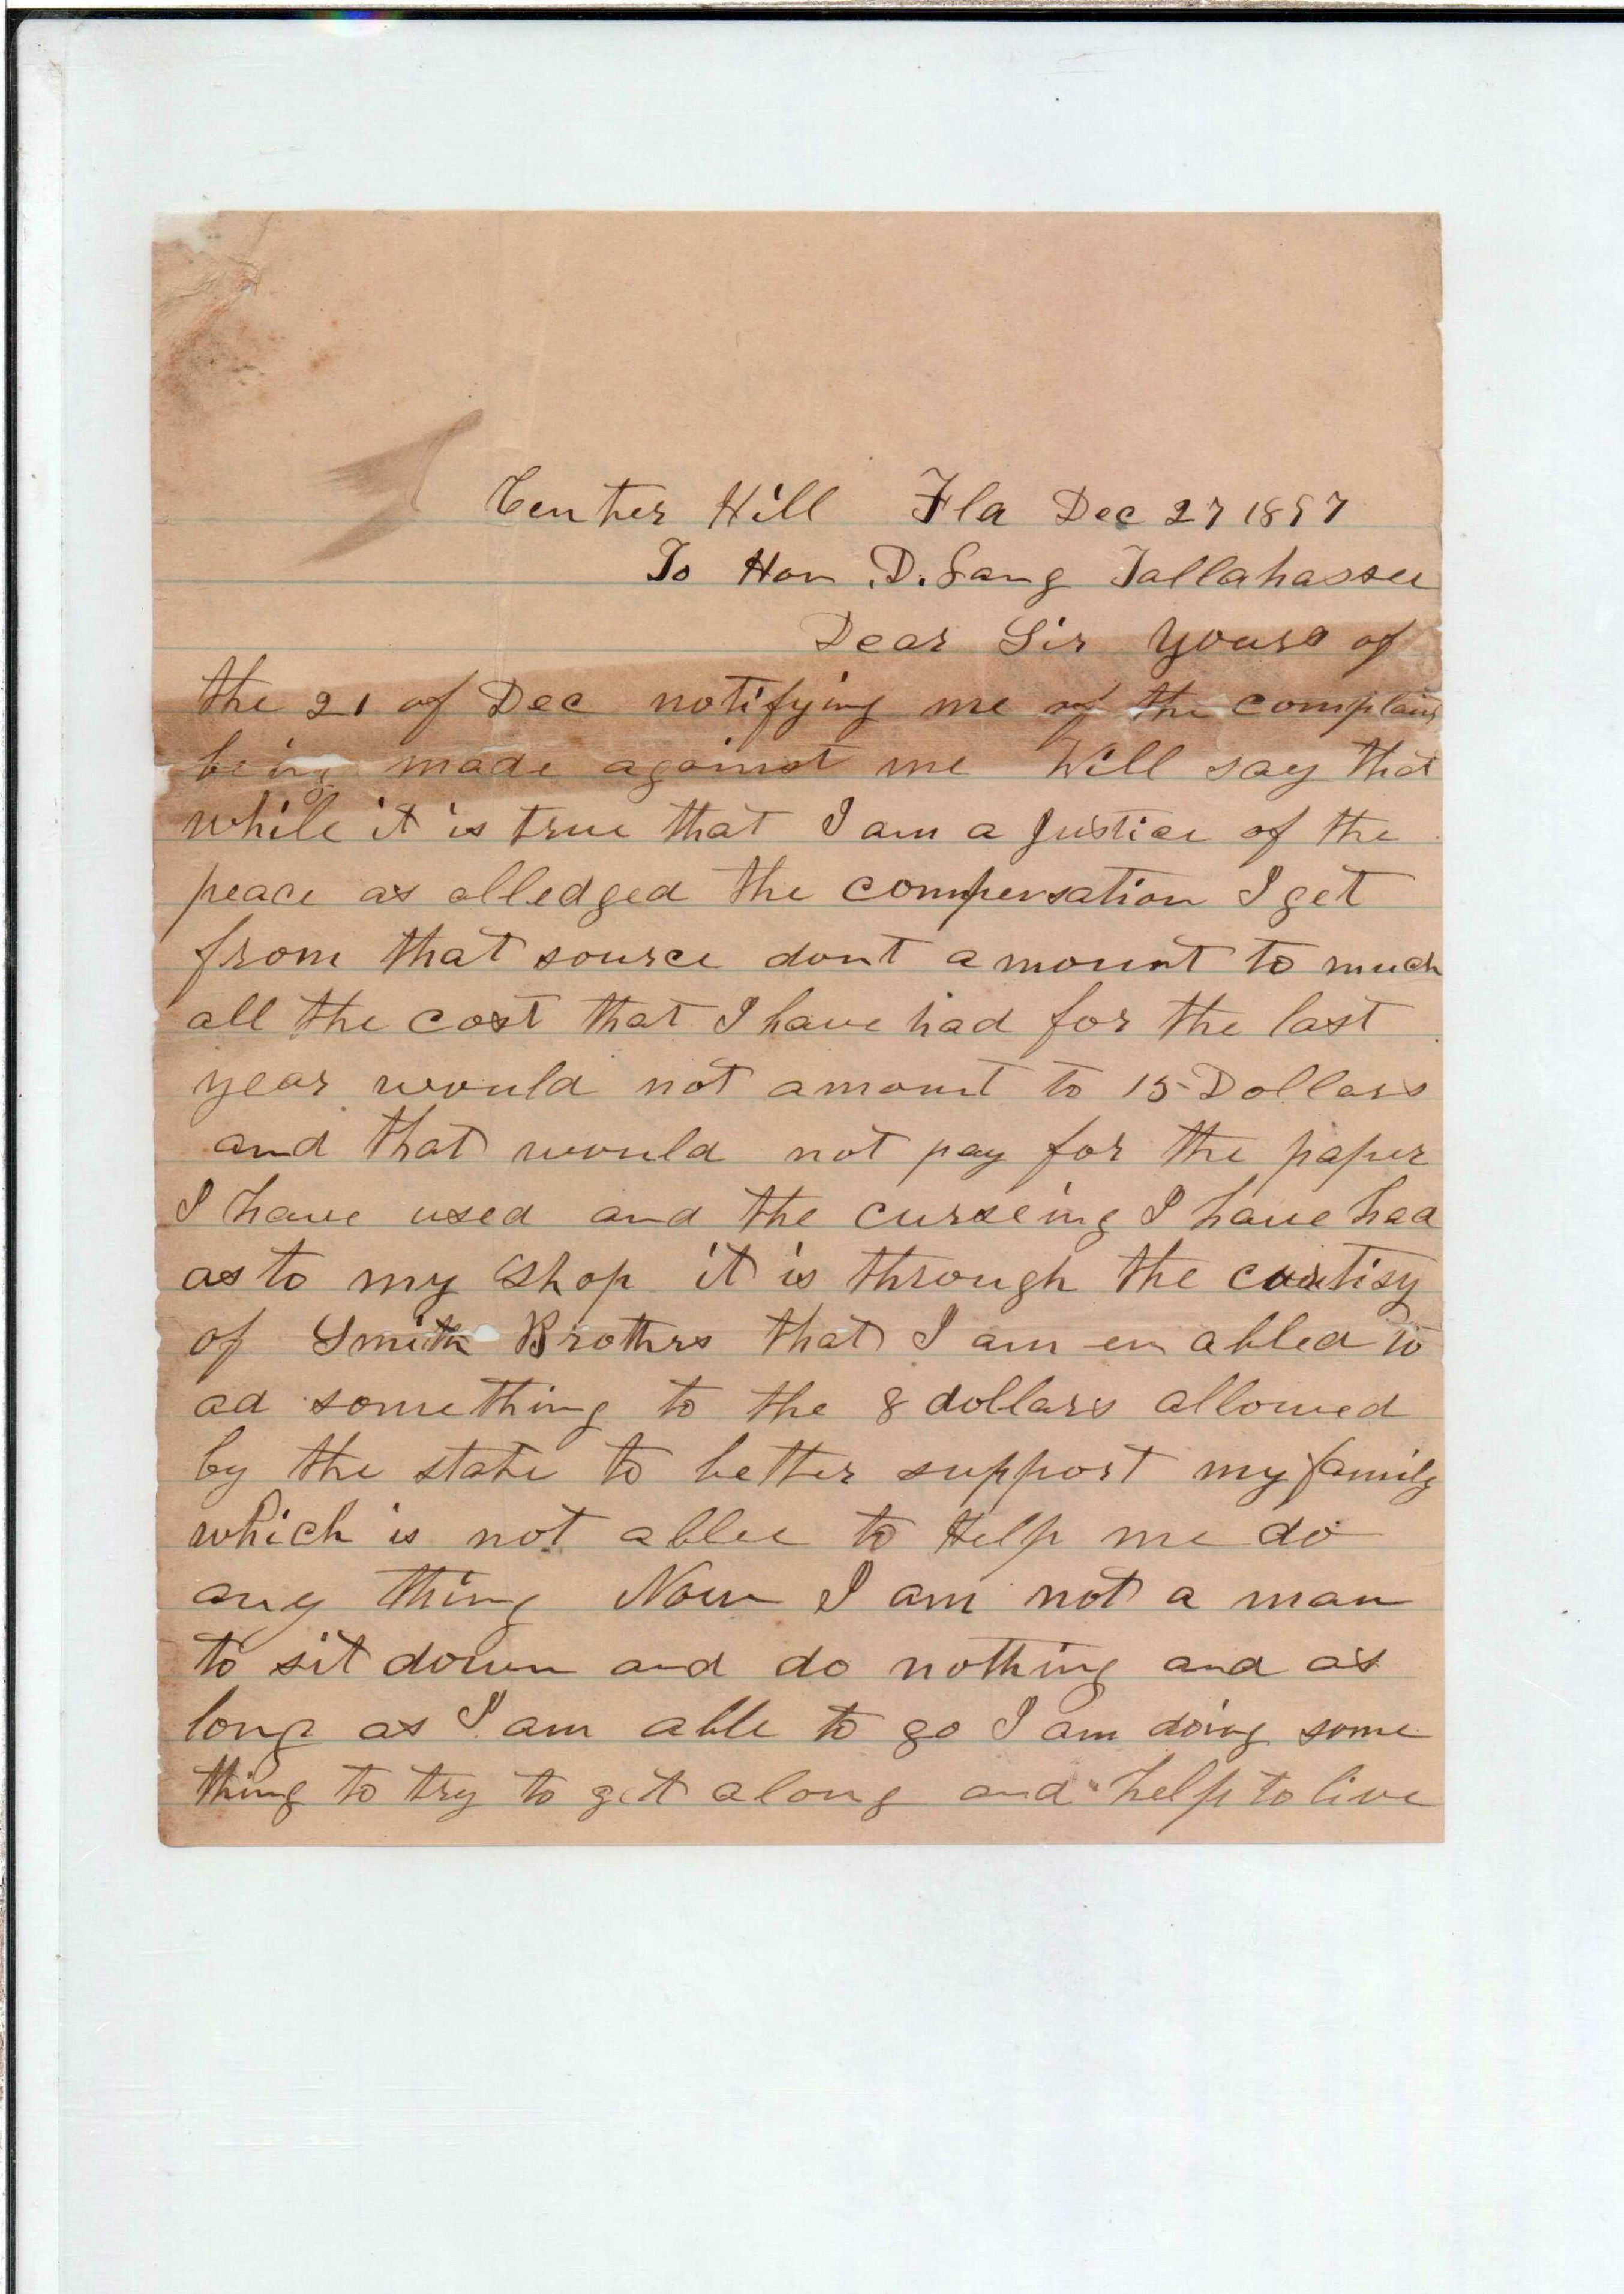 Center Hill Fla Dec 27 1897
To Hon D. Lang Tallahassee
Dear Sir Yours of
the 21 of Dec notifying me of the complaint
being made against me Will say that
while it is true that I am a Justice of the
peace as alledged the compensation I get
from that source dont amount to much
all the cost that I have had for the last
year would not amount to 15 Dollars
and that would not pay for the paper
I have used and the curseing I have had
as to my shop it is through the
of Smith Brothers that I am en abled to
ad something to the 8 dollars allowed
by the state to better support my family
which is not able to Help me do
any thing Now I am not a man
to sit down and do nothing and as
long as I am able to go I am doing some
thing to try to get along and help to live